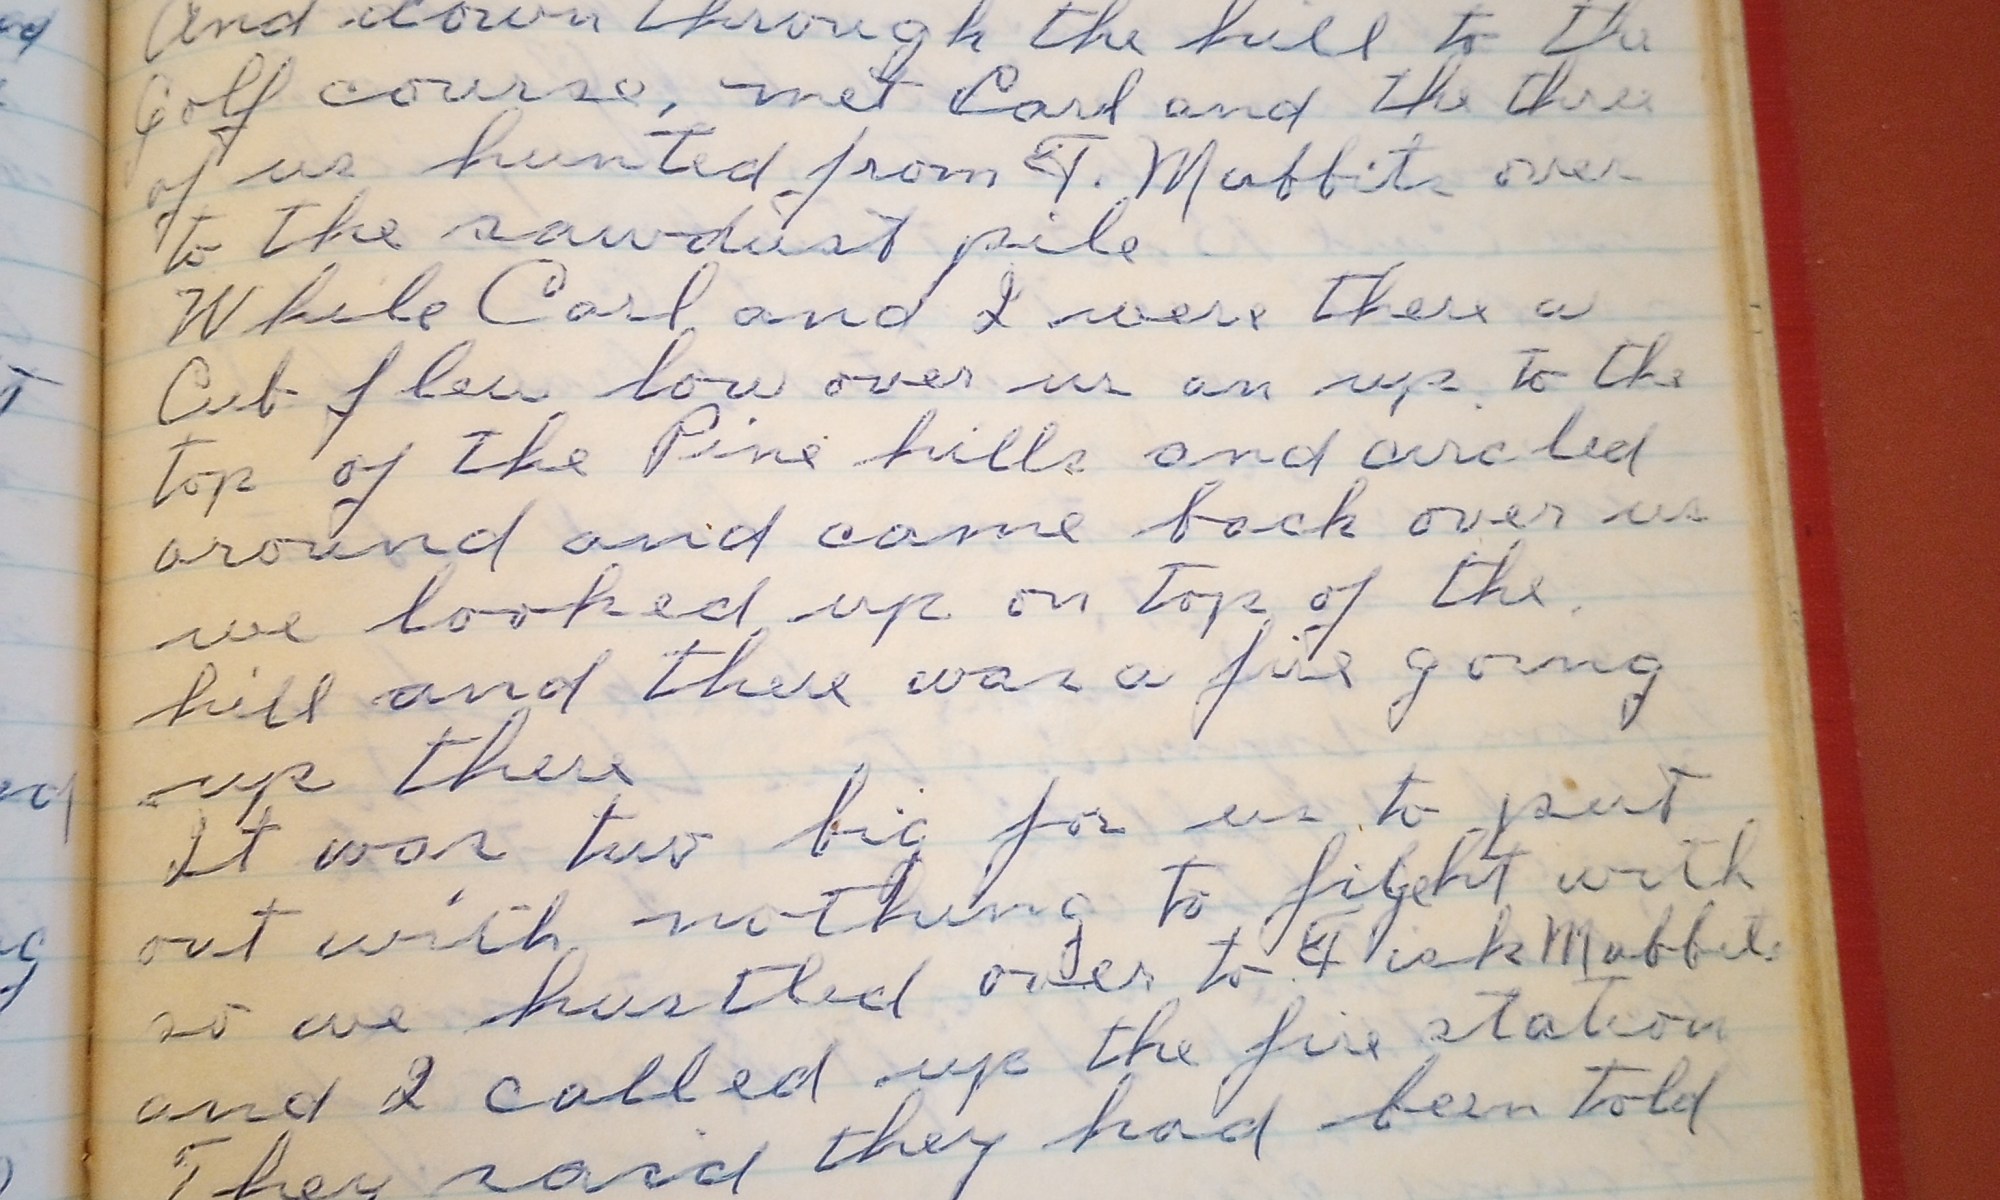 And down through the hill to the
Golf course, met Carl and the three
of us hunted from F. Mabbits over
to the sawdust pile
While Carl and I were there a
Cub flew low over us an up to the
top of the Pine hills and circled
around and came back over us
we looked up on top of the
hill and there was a fire going
up there
It was two big for us to put
out with nothing to fight with
so we hustled over to Fisk Mabbits
and I called up the fire station
They said they had been told